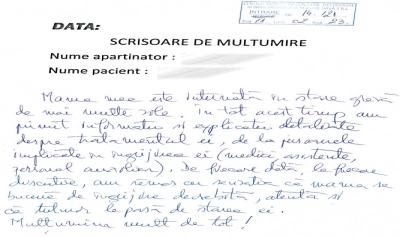 INTRARE Nr. 14.121
Ziua 11 Luna 02 23.
DATA:
SCRISOARE DE MULTUMIRE
Nume apartinator :
Nume pacient :
Mama mea este internată în stare gravă
de mai multe zile. In tot acest timp am
primit informatii si explicatii detaliate
despre tratamentul ei, de la persoanele
implicate in ingrijirea ei (medici, asistente,
personal auxiliar). De fiecare dată, la fiecare
discutie, am rămas cu senzatia că mama se
bucură de ingrijire deosebită, atentă si
că tuturor le pasă de starea ei.
Multumim mult de tot!